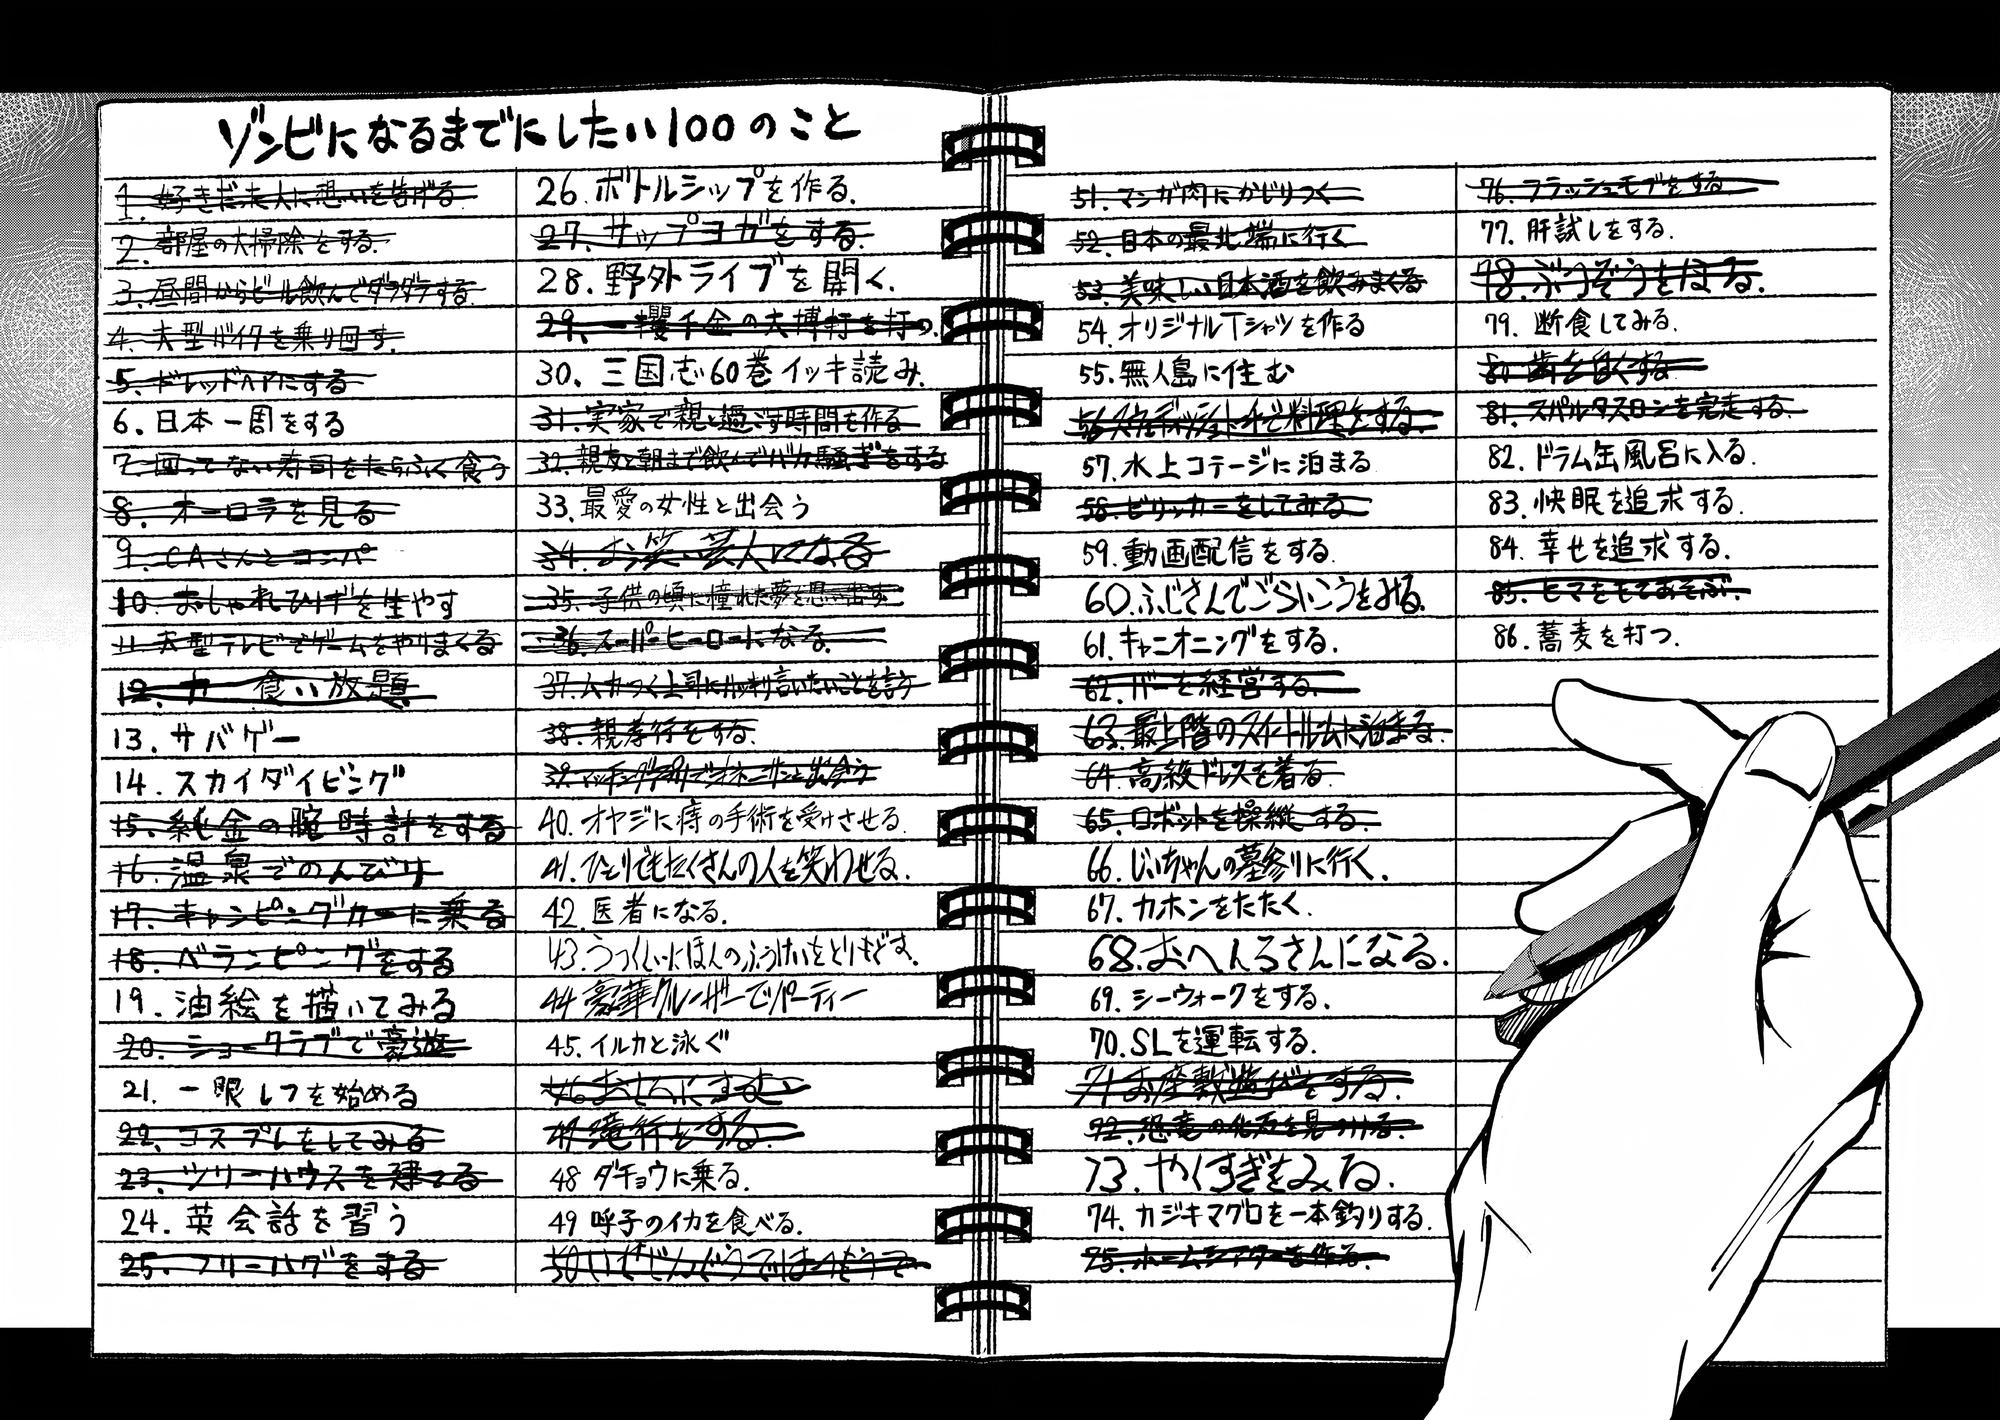 ゾンビになるまでにしたい100のこと
1. 好きだった人に想いを告げる
2. 部屋の大掃除をする.
3. 昼間からビール飲んでダラダラする.
4. 大型バイクを乗り回す.
5. ドレッドヘアにする
6. 日本一周をする
7. 回ってない寿司をたらふく食う
8. オーロラを見る
9. CAさんとコンパ
10. おしゃれひげを生やす
11. 大型テレビでゲームをやりまくる
12. カ 食い放題
13. サバゲー
14. スカイダイビング
15. 純金の腕時計をする
16. 温泉でのんびり
17. キャンピングカーに乗る
18. ベランピングをする
19. 油絵を描いてみる
20. ショークラブで豪遊
21. 一眼レフを始める
22. コスプレをしてみる
23. ツリーハウスを建てる
24. 英会話を習う
25. フリーハグをする
26. ボトルシップを作る.
27. サップヨガをする.
28. 野外ライブを開く.
29. 一攫千金の大博打を打つ.
30. 三国志60巻イッキ読み.
31. 実家で親と過ごす時間を作る
32. 親友と朝まで飲んでバカ騒ぎをする
33. 最愛の女性と出会う
34. お笑い芸人になる
35. 子供の頃に憧れた夢を思い出す
36. スーパーヒーローになる.
37. ムカつく上司にハッキリ言いたいことを言う
38. 親孝行をする.
39. マッチングアプリでオネーサンと出会う
40. オヤジに痔の手術を受けさせる.
41. ひとりでもたくさんの人を笑わせる.
42. 医者になる.
43. うつくしいにほんのふうけいをとりもどす.
44 豪華クルーザーでパーティー
45. イルカと泳ぐ
46 おしろにすむ
47 滝行をする.
48 ダチョウに乗る.
49 呼子のイカを食べる.
50
51. マンガ肉にかじりつく
52. 日本の最北端に行く
53. 美味しい日本酒を飲みまくる
54. オリジナルTシャツを作る
55. 無人島に住む
56 スウェディッシュトーチで料理をする.
57. 水上コテージに泊まる
58. ビリッカーをしてみる
59. 動画配信をする.
60. ふじさんでごらいこうをみる.
61. キャニオニングをする.
62. バーを経営する.
63. 最上階のスイートルームに泊まる.
64. 高級ドレスを着る
65. ロボットを操縦する.
66. じいちゃんの墓参りに行く.
67. カホンをたたく.
68. おへんろさんになる.
69. シーウォークをする.
70. SLを運転する.
71 お座敷遊びをする.
72. 恐竜の化石を見つける.
73. やくすぎをみる.
74. カジキマグロを一本釣りする.
75. ホームシアターを作る.
76. フラッシュモブをする
77. 肝試しをする.
78. ぶつぞうをほる.
79. 断食してみる.
80 歯を白くする
81. スパルタスロンを完走する.
82. ドラム缶風呂に入る.
83. 快眠を追求する.
84. 幸せを追求する.
85. ヒマをもてあそぶ.
86. 蕎麦を打つ.